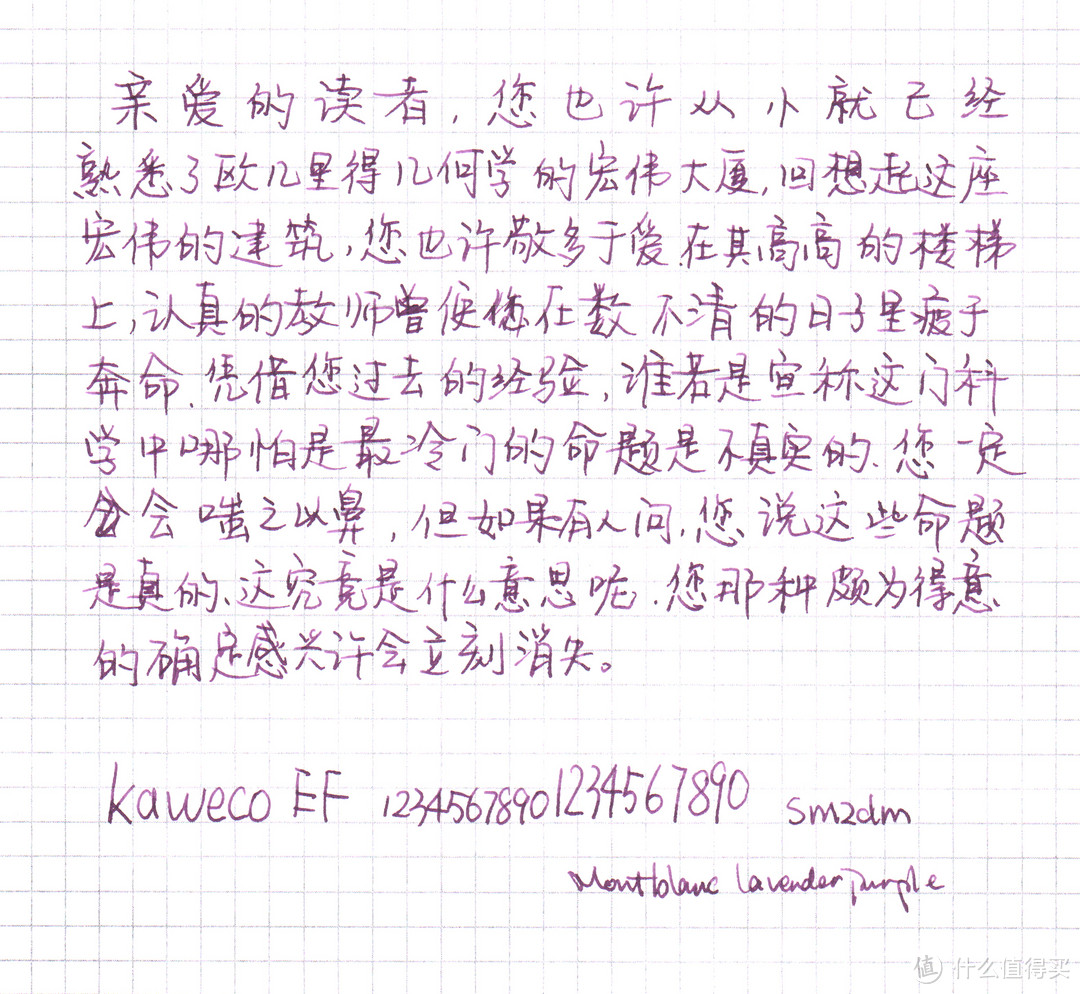 亲爱的读者，您也许从小就已经
熟悉了欧几里得几何学的宏伟大厦，回想起这座
宏伟的建筑，您也许敬多于爱，在其高高的楼梯
上，认真的教师曾使您在数不清的日子里疲于
奔命、凭借您过去的经验，谁若是宣称这门科
学中哪怕是最冷门的命题是不真实的、您一定
会嗤之以鼻，但如果有人问，您说这些命题
是真的、这究竟是什么意思呢、您那种颇为得意
的确定感兴许会立刻消失。
Kaweco EF 1234567890 1234567890 smzdm
Montblanc lavender purple
值 什么值得买